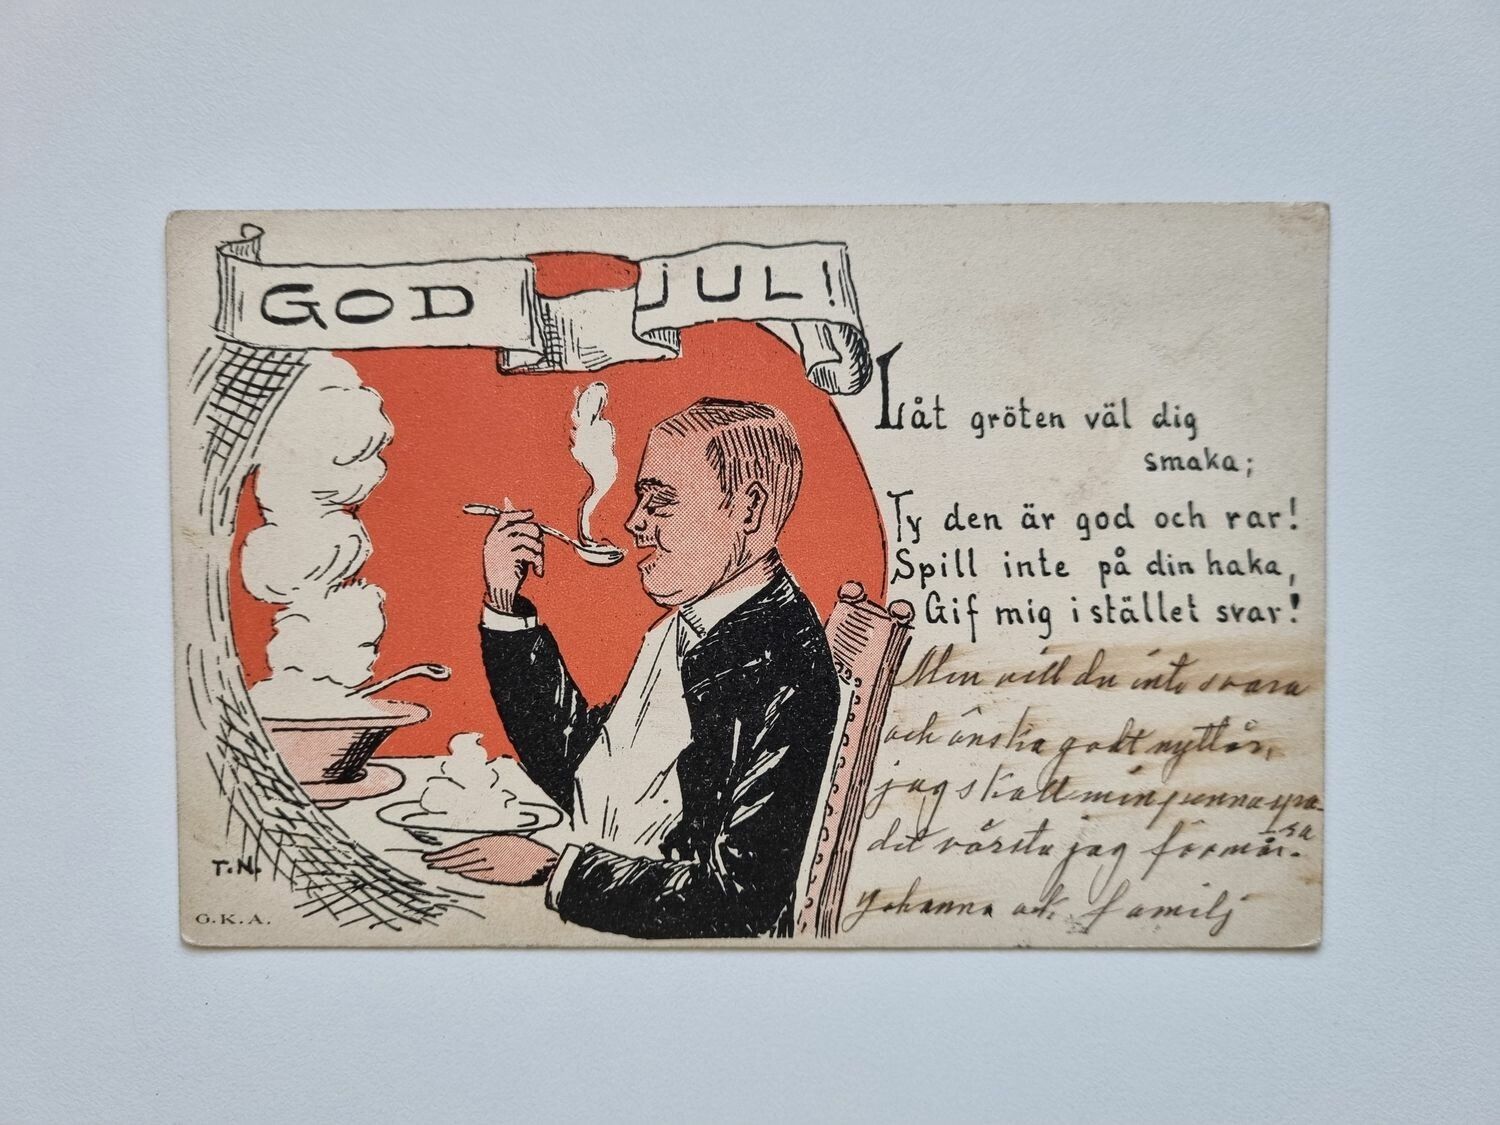 GOD JUL!
Låt gröten väl dig
smaka;
Ty den är god och rar!
Spill inte på din haka,
Gif mig i stället svar!
Men vill du inte svara
och önska godt nyttår,
jag skall min penna spa-
ra
det värsta jag förmår.
Johanna och familj
T.N.
G.K.A.